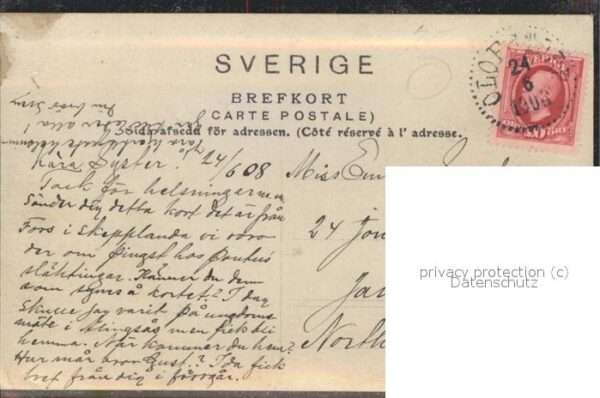 SVERIGE
BREFKORT
(CARTE POSTALE)
Sidan afsedd för adressen. (Côté réservé à l' adresse.
OLOF
24
6
1908
SVERIGE
Kära Syster! 24/6 08
Tack för helsningarna
Sänder dig detta kort det är från
Fors i Skepplanda vi voro
der om pingst hos
släktingar. Känner du dem
som synes å kortet? I dag
skulle jag varit på ungdoms
möte i Alingsås men fick bli
hemma. När kommer du hem?
Hur mår bror Gust.? I da fick
bref från dig i förrgår.
Miss
24
North
privacy protection (c)
Datenschutz